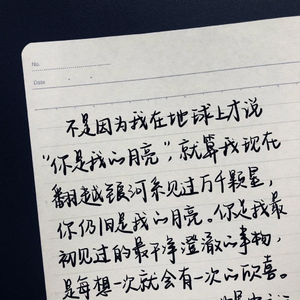 No.
Date
不是因为我在地球上才说
“你是我的月亮”，就算我现在
翻越银河系见过万千颗星，
你仍旧是我的月亮。你是我最
初见过的最干净澄澈的事物，
是每想一次就会有一次的欣喜。